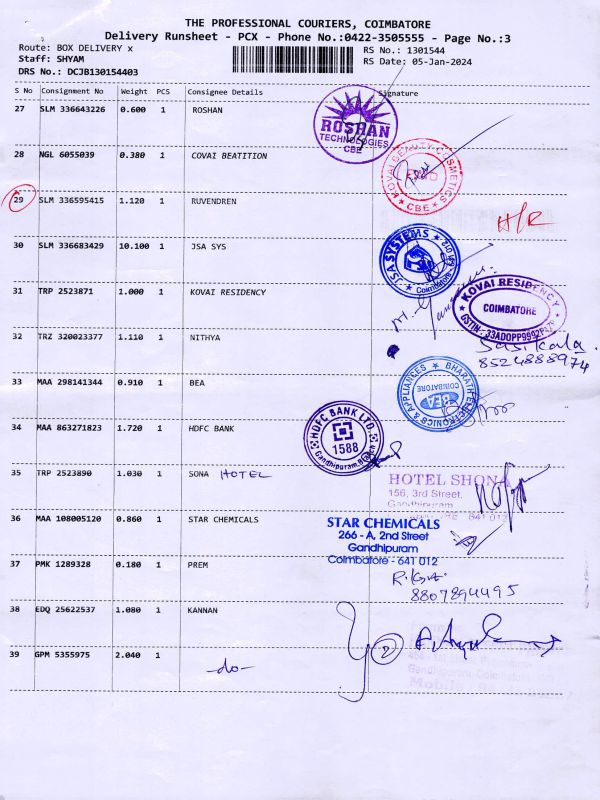 THE PROFESSIONAL COURIERS, COIMBATORE
Delivery Runsheet - PCX - Phone No.:0422-3505555 - Page No.:3
Route: BOX DELIVERY x
RS No.: 1301544
Staff: SHYAM
RS Date: 05-Jan-2024
DRS No.: DCJB130154403
S No Consignment No Weight PCS Consignee Details Signature
27 SLM 336643226 0.600 1 ROSHAN
ROSHAN
TECHNOLOGIES
CBE
28 NGL 6055039 0.380 1 COVAI BEATITION
KOVAI BEAUTY COSMETICS
CBE
29 SLM 336595415 1.120 1 RUVENDREN
H/R
30 SLM 336683429 10.100 1 JSA SYS
JSA SYSTEMS
Coimbatore
31 TRP 2523871 1.000 1 KOVAI RESIDENCY
KOVAI RESIDENCY
COIMBATORE
32 TRZ 320023377 1.110 1 NITHYA
Sasikala
8524888974
33 MAA 298141344 0.910 1 BEA
BHARATH ELECTRONICS & APPLIANCES
BEA
COIMBATORE
34 MAA 863271823 1.720 1 HDFC BANK
HDFC BANK LTD.
1588
Gandhipuram Branch
35 TRP 2523890 1.030 1 SONA HOTEL
HOTEL SHONA
156, 3rd Street,
Gandhipuram
641 012
36 MAA 108005120 0.860 1 STAR CHEMICALS
STAR CHEMICALS
266 - A, 2nd Street
Gandhipuram
Coimbatore - 641 012
37 PMK 1289328 0.180 1 PREM
8807894495
38 EDQ 25622537 1.080 1 KANNAN
2
39 GPM 5355975 2.040 1 -do-